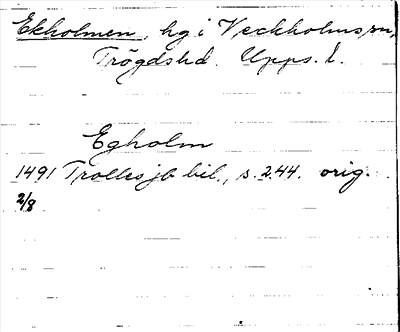 Ekholmen, hg i Veckholms sn,
Trögds hd. Upps. l.
Egholm
1491 Trolles jb bil., s. 244. orig.
2/8